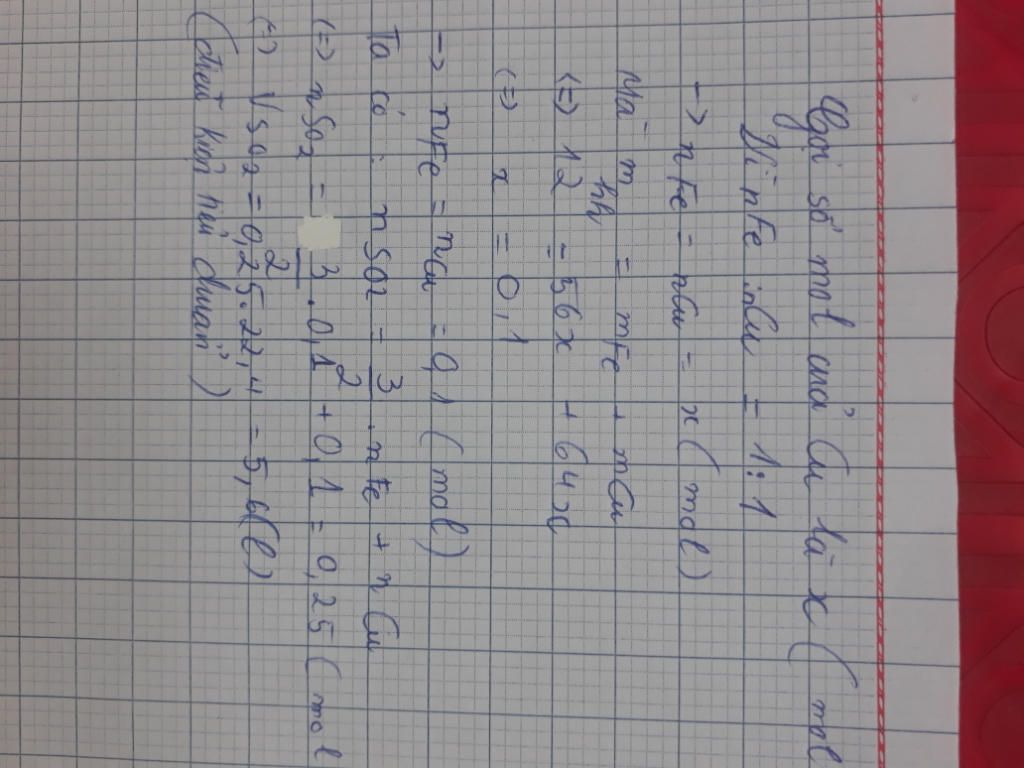 Gọi số mol của Cu là x (mol
Vì nFe : nCu = 1 : 1
-> nFe = nCu = x (mol)
Mà m hh = mFe + mCu
<=> 12 = 56x + 64x
<=> x = 0,1
-> nFe = nCu = 0,1 (mol)
Ta có : nSO2 = 3/2 . nFe + nCu
<=> nSO2 = 3/2 . 0,1 + 0,1 = 0,25 (mol
<=> VSO2 = 0,25 . 22,4 = 5,6 (l)
(điều kiện tiêu chuẩn)